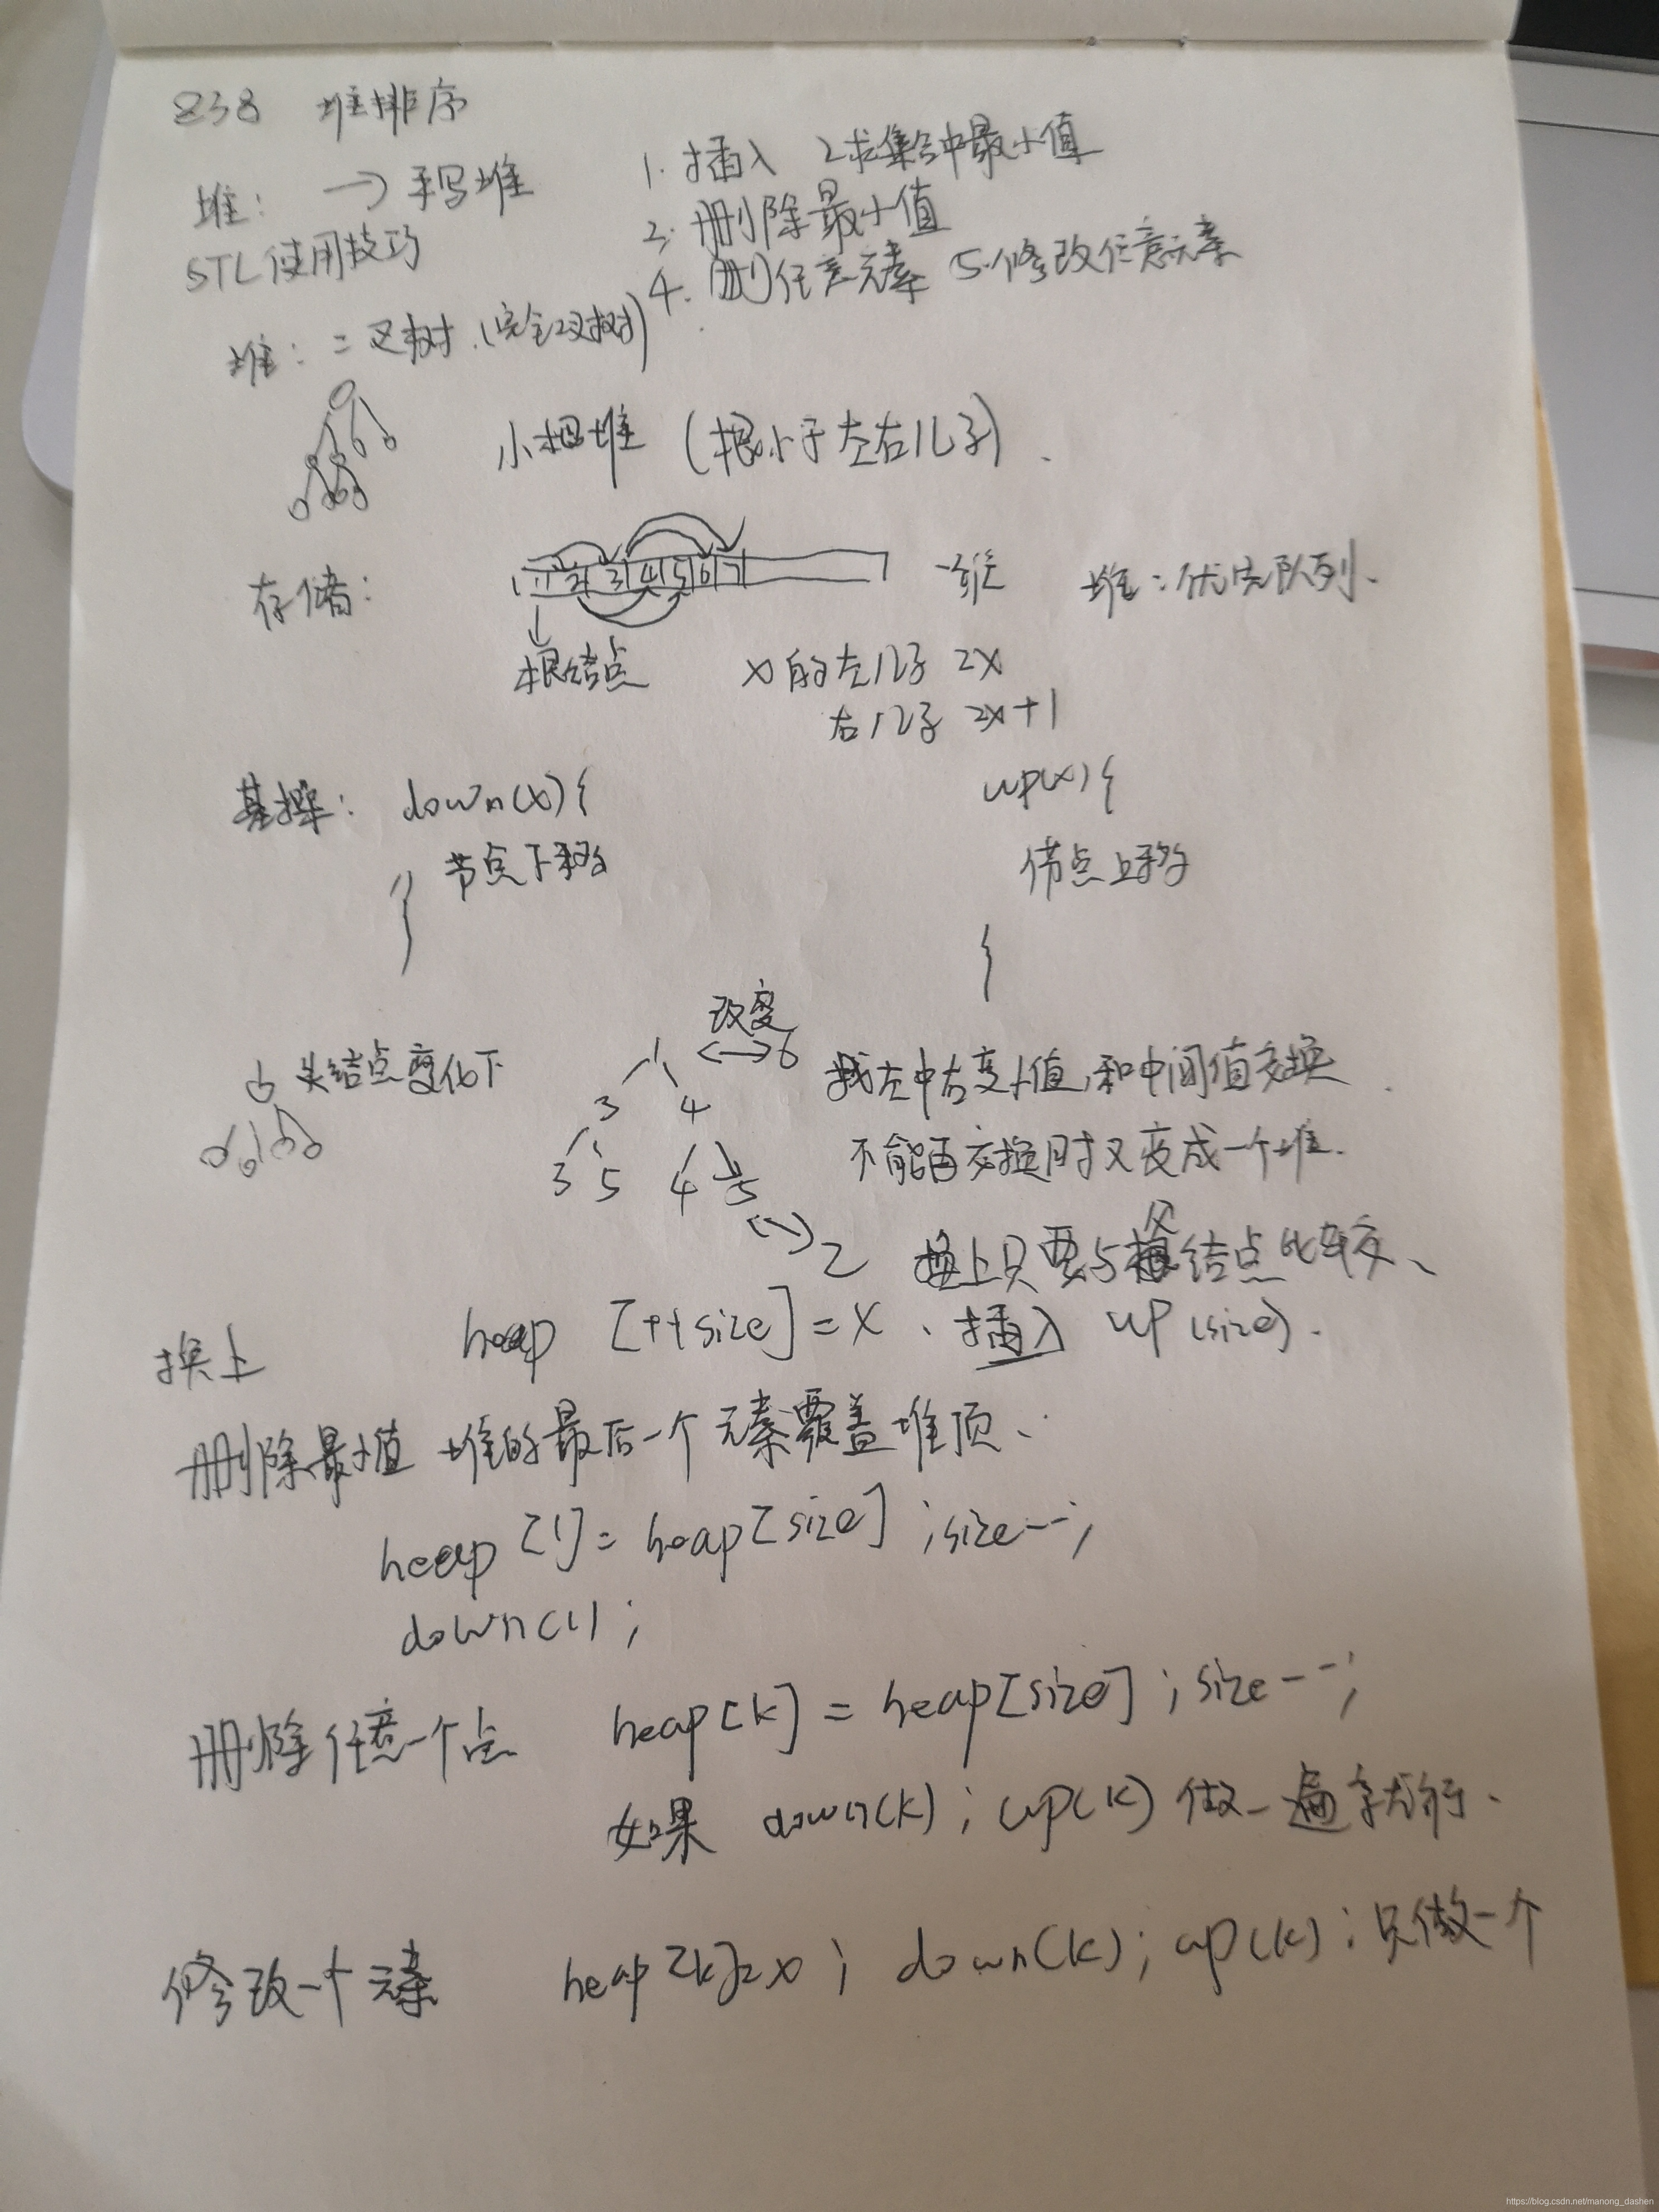 838 堆排序
堆: → 手写堆
STL使用技巧
1. 插入 2求集合中最小值
3. 删除最小值
4. 删任意元素 5.修改任意元素
堆: 二叉树.(完全二叉树)
小根堆 (根小于左右儿子).
存储:
1 2 3 4 5 6 7
一维 堆:优先队列.
根结点
x的左儿子 2x
右儿子 2x+1
基操: down(x){
节点下移
}
up(x){
节点上移
}
头结点变化下
改变
1 ↔ 6
3 4
3 5 4 5
2
找左中右最小值,和中间值交换.
不能再交换时又变成一个堆.
换上只要与父结点比较、
换上 heap [++size]=x 、插入 up(size).
删除最小值 堆的最后一个元素覆盖堆顶、
heap [1]= heap[size] ;size--;
down(1);
删除任意一个点 heap[k] = heap[size] ; size--;
如果 down(k); up(k) 做一遍就行.
修改一个元素 heap[k]=x ; down(k); up(k); 只做一个
https://blog.csdn.net/manong_dashen